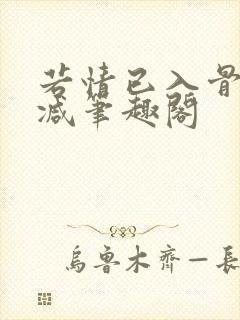 若情已入骨
减笔趣阁
乌鲁木齐一长